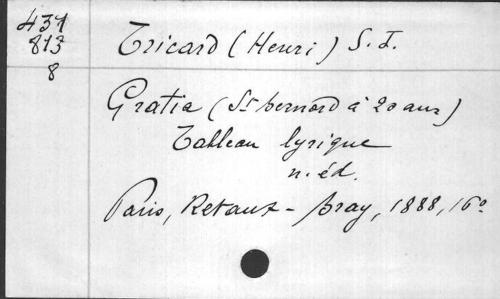 431
813
8
Tricard (Henri) S. I.
Gratia (St bernard à 20 ans)
Tableau lyrique
n. éd.
Paris, Retaux - Bray, 1888, 16º